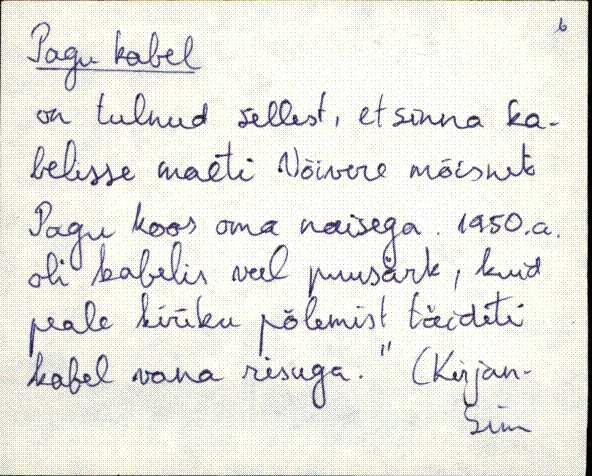 6
Pagu kabel
on tulnud sellest, et sinna ka-
belisse maeti Võivere mõisnik
Pagu koos oma naisega. 1950.a.
oli kabelis veel puusärk, kuid
peale kiriku põlemist täideti
kabel vana risuga." (Kirjan-
Sim